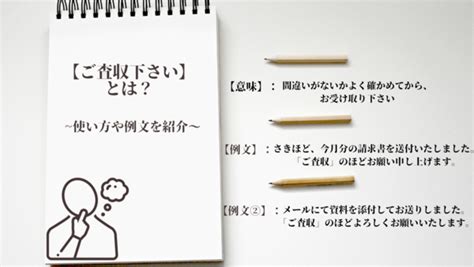 【ご査収下さい】
とは？
~使い方や例文を紹介～
【意味】： 間違いがないかよく確かめてから、
お受け取り下さい
【例文】：さきほど、今月分の請求書を送付いたしました。
「ご査収」のほどお願い申し上げます。
【例文②】：メールにて資料を添付してお送りしました。
「ご査収」のほどよろしくお願いいたします。